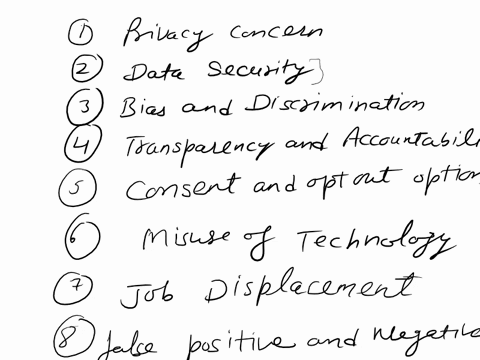 ① Privacy concern
② Data Security]
③ Bias and Discrimination
④ Transparency and Accountabili
⑤ Consent and opt out option
⑥ Misuse of Technology
⑦ Job Displacement
⑧ false positive and Negative